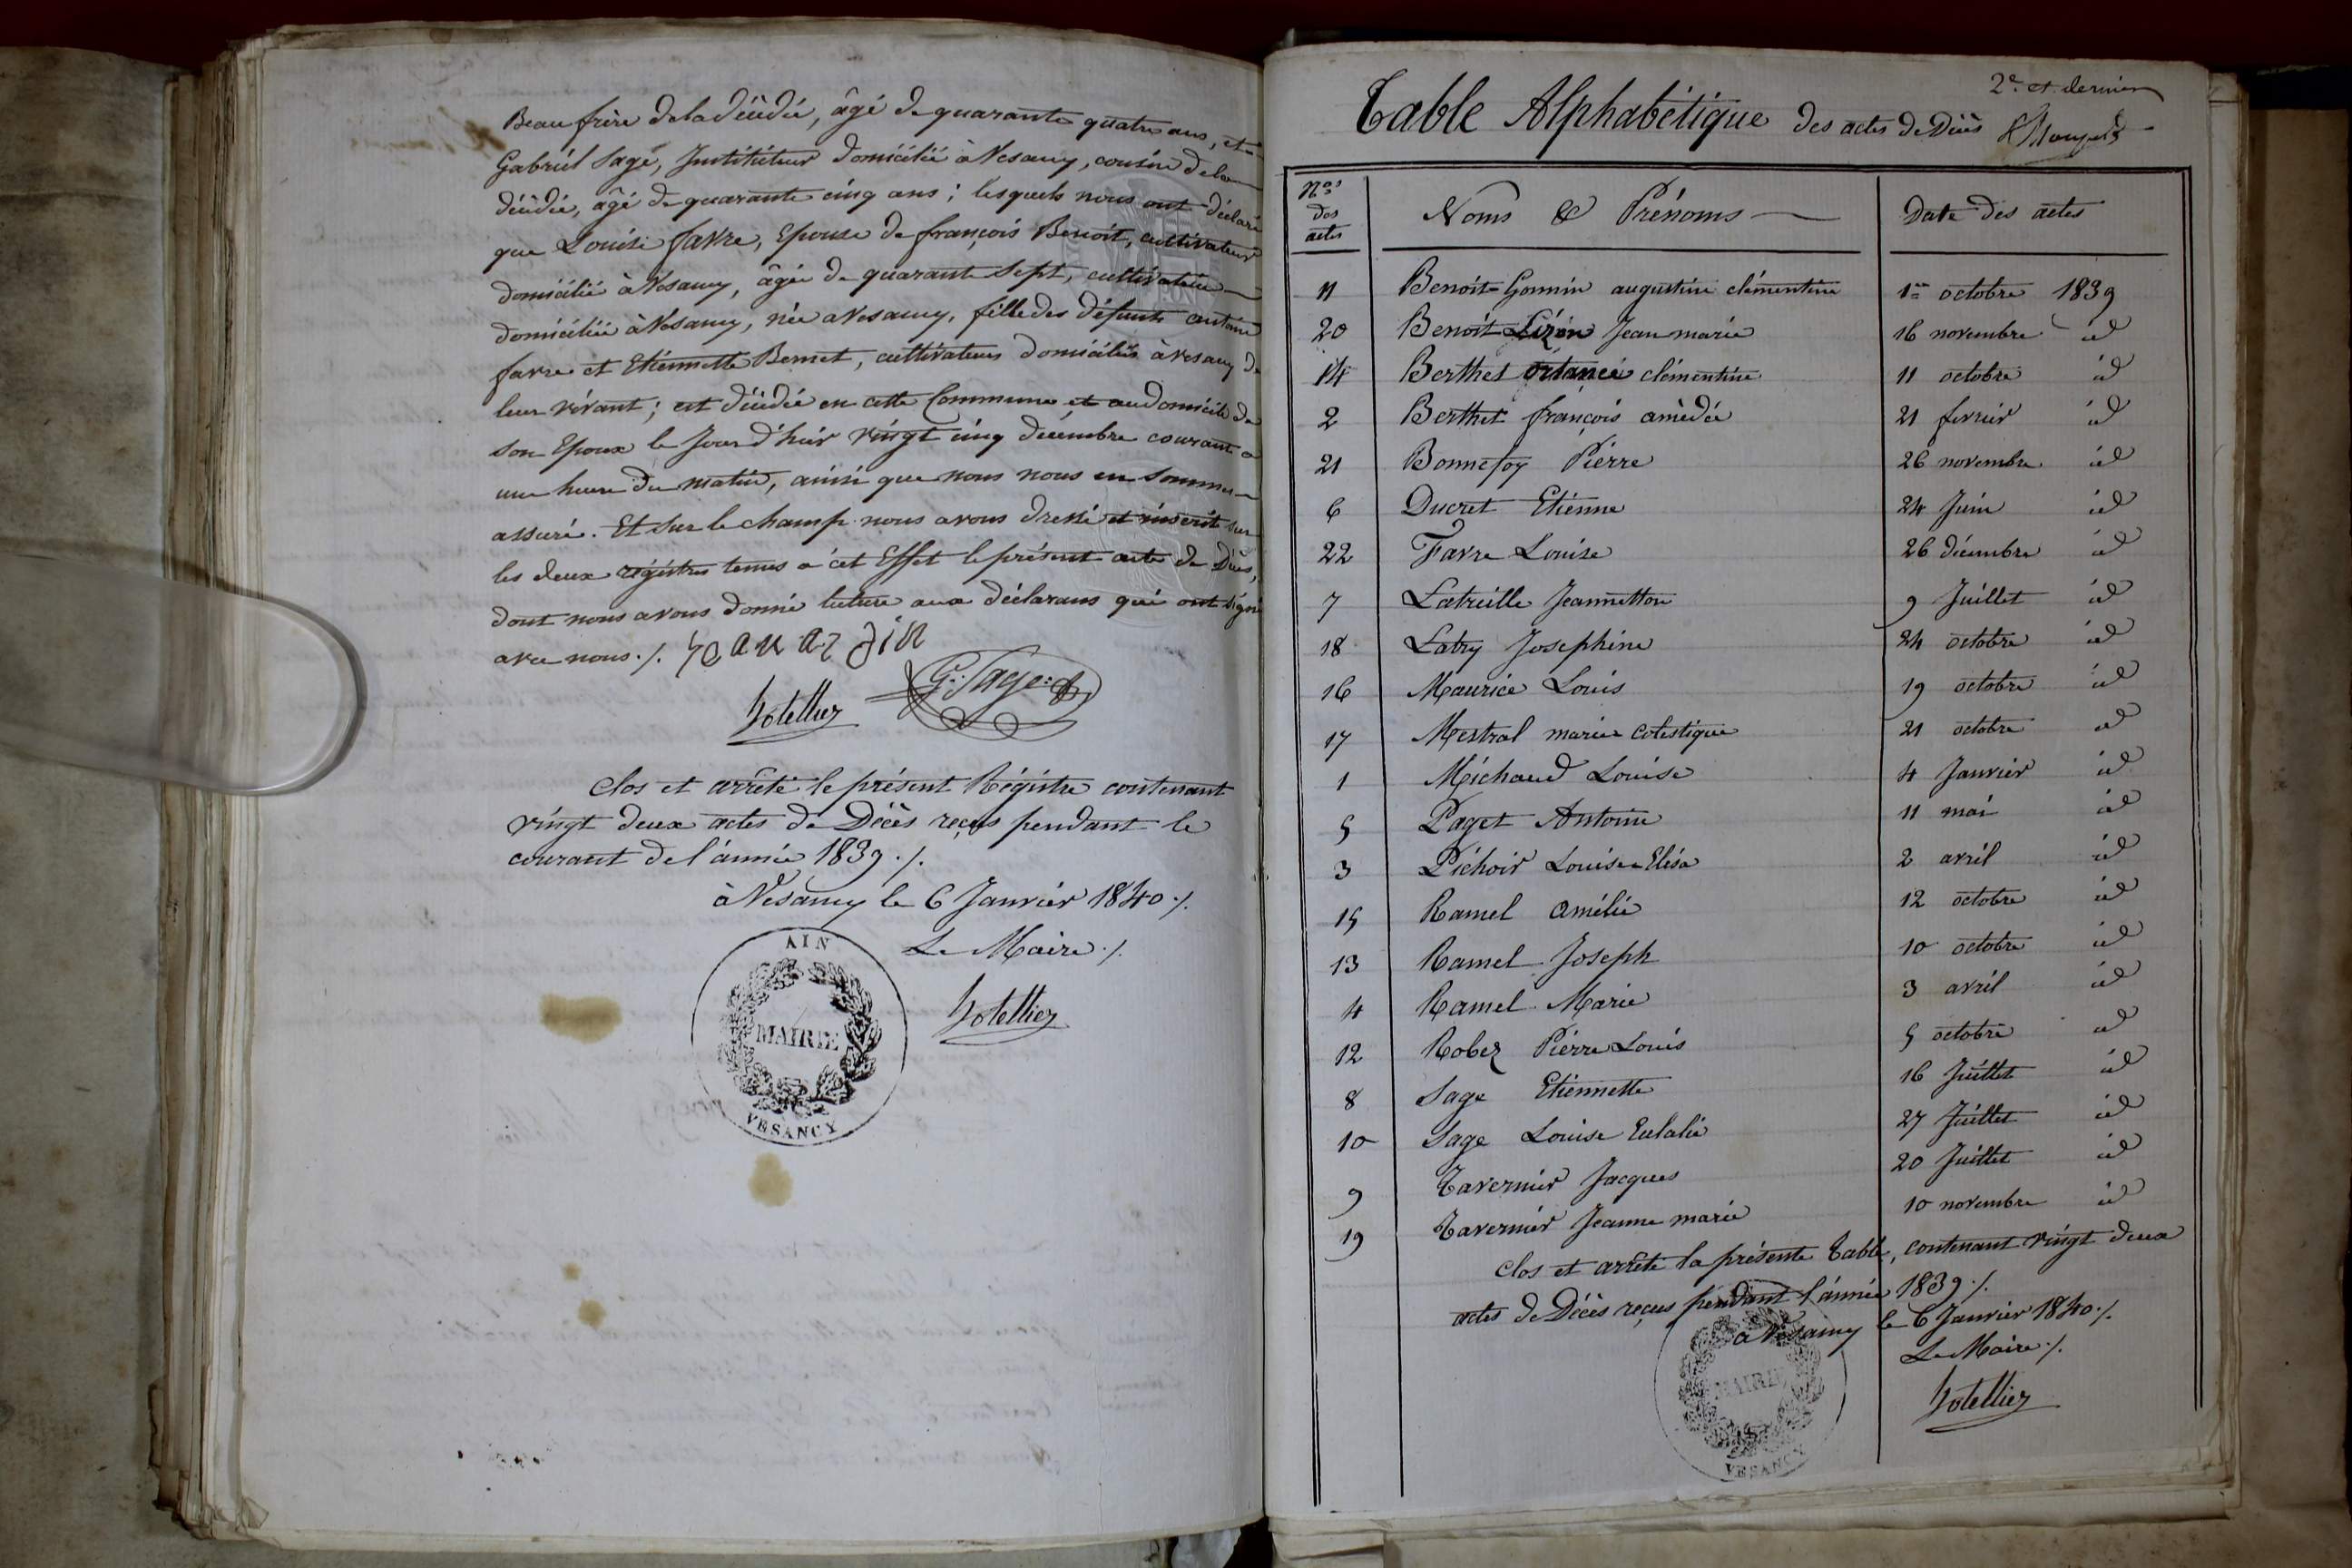 Beau frère de la décédée, âgé de quarante quatre ans, et
Gabriel Sage, Instituteur domicilié à Vesancy, cousin de la
décédée, âgé de quarante cinq ans ; lesquels nous ont déclaré
que Louise favre, Epouse de françois Benoit, cultivateur
domicilié à Vesancy, âgée de quarante sept, cultivatrice
domiciliée à Vesancy, née a Vesancy, fille des défunts antoine
favre et Etiennette Bernet, cultivateurs domiciliés à Vesancy de
leur vivant ; est décédée en cette Commune et au domicile de
son Epoux le Jour d'hier vingt cinq décembre courant a
une heure du matin, ainsi que nous nous en sommes
assuré. Et sur le champ nous avons dressé et inscrit sur
les deux régistres tenus à cet Effet le présent acte de Décès,
dont nous avons donné lecture aux déclarans qui ont signé
avec nous ./.
G. Sage
Clos et arrêté le présent Régistre contenant
vingt deux actes de Décès reçus pendant le
courant de l'année 1839 ./.
à Vesancy le 6 Janvier 1840 ./.
Le Maire ./.
AIN
MAIRIE
VESANCY
2e et dernier
Table Alphabétique des actes de Décès
Nos des actes Noms & Prénoms Date des actes
11 Benoit-Gonnin augustine clémentine 1er octobre 1839
20 Benoit Lizon Jean marie 16 novembre id
14 Berthet ortance clémentine 11 octobre id
2 Berthet françois amédée 21 fevrier id
21 Bonnefoy Pierre 26 novembre id
6 Ducret Etienne 24 Juin id
22 Favre Louise 26 décembre id
7 Latreille Jeannetton 9 Juillet id
18 Latry Josephine 24 octobre id
16 Maurice Louis 19 octobre id
17 Mestral marie colestique 21 octobre id
1 Michaud Louise 4 Janvier id
5 Paget Antoine 11 mai id
3 Pichoir Louise Elisa 2 avril id
15 Ramel amélie 12 octobre id
13 Ramel Joseph 10 octobre id
4 Ramel Marie 3 avril id
12 Robez Pierre Louis 5 octobre id
8 Sage Etiennette 16 Juillet id
10 Sage Louise Eulalie 27 Juillet id
9 Tavernier Jacques 20 Juillet id
19 Tavernier Jeanne marie 10 novembre id
Clos et arrêté la présente Table, contenant vingt deux
actes de Décès reçus pendant l'année 1839 ./.
à Vesancy le 6 Janvier 1840 ./.
Le Maire ./.
MAIRIE
VESANCY